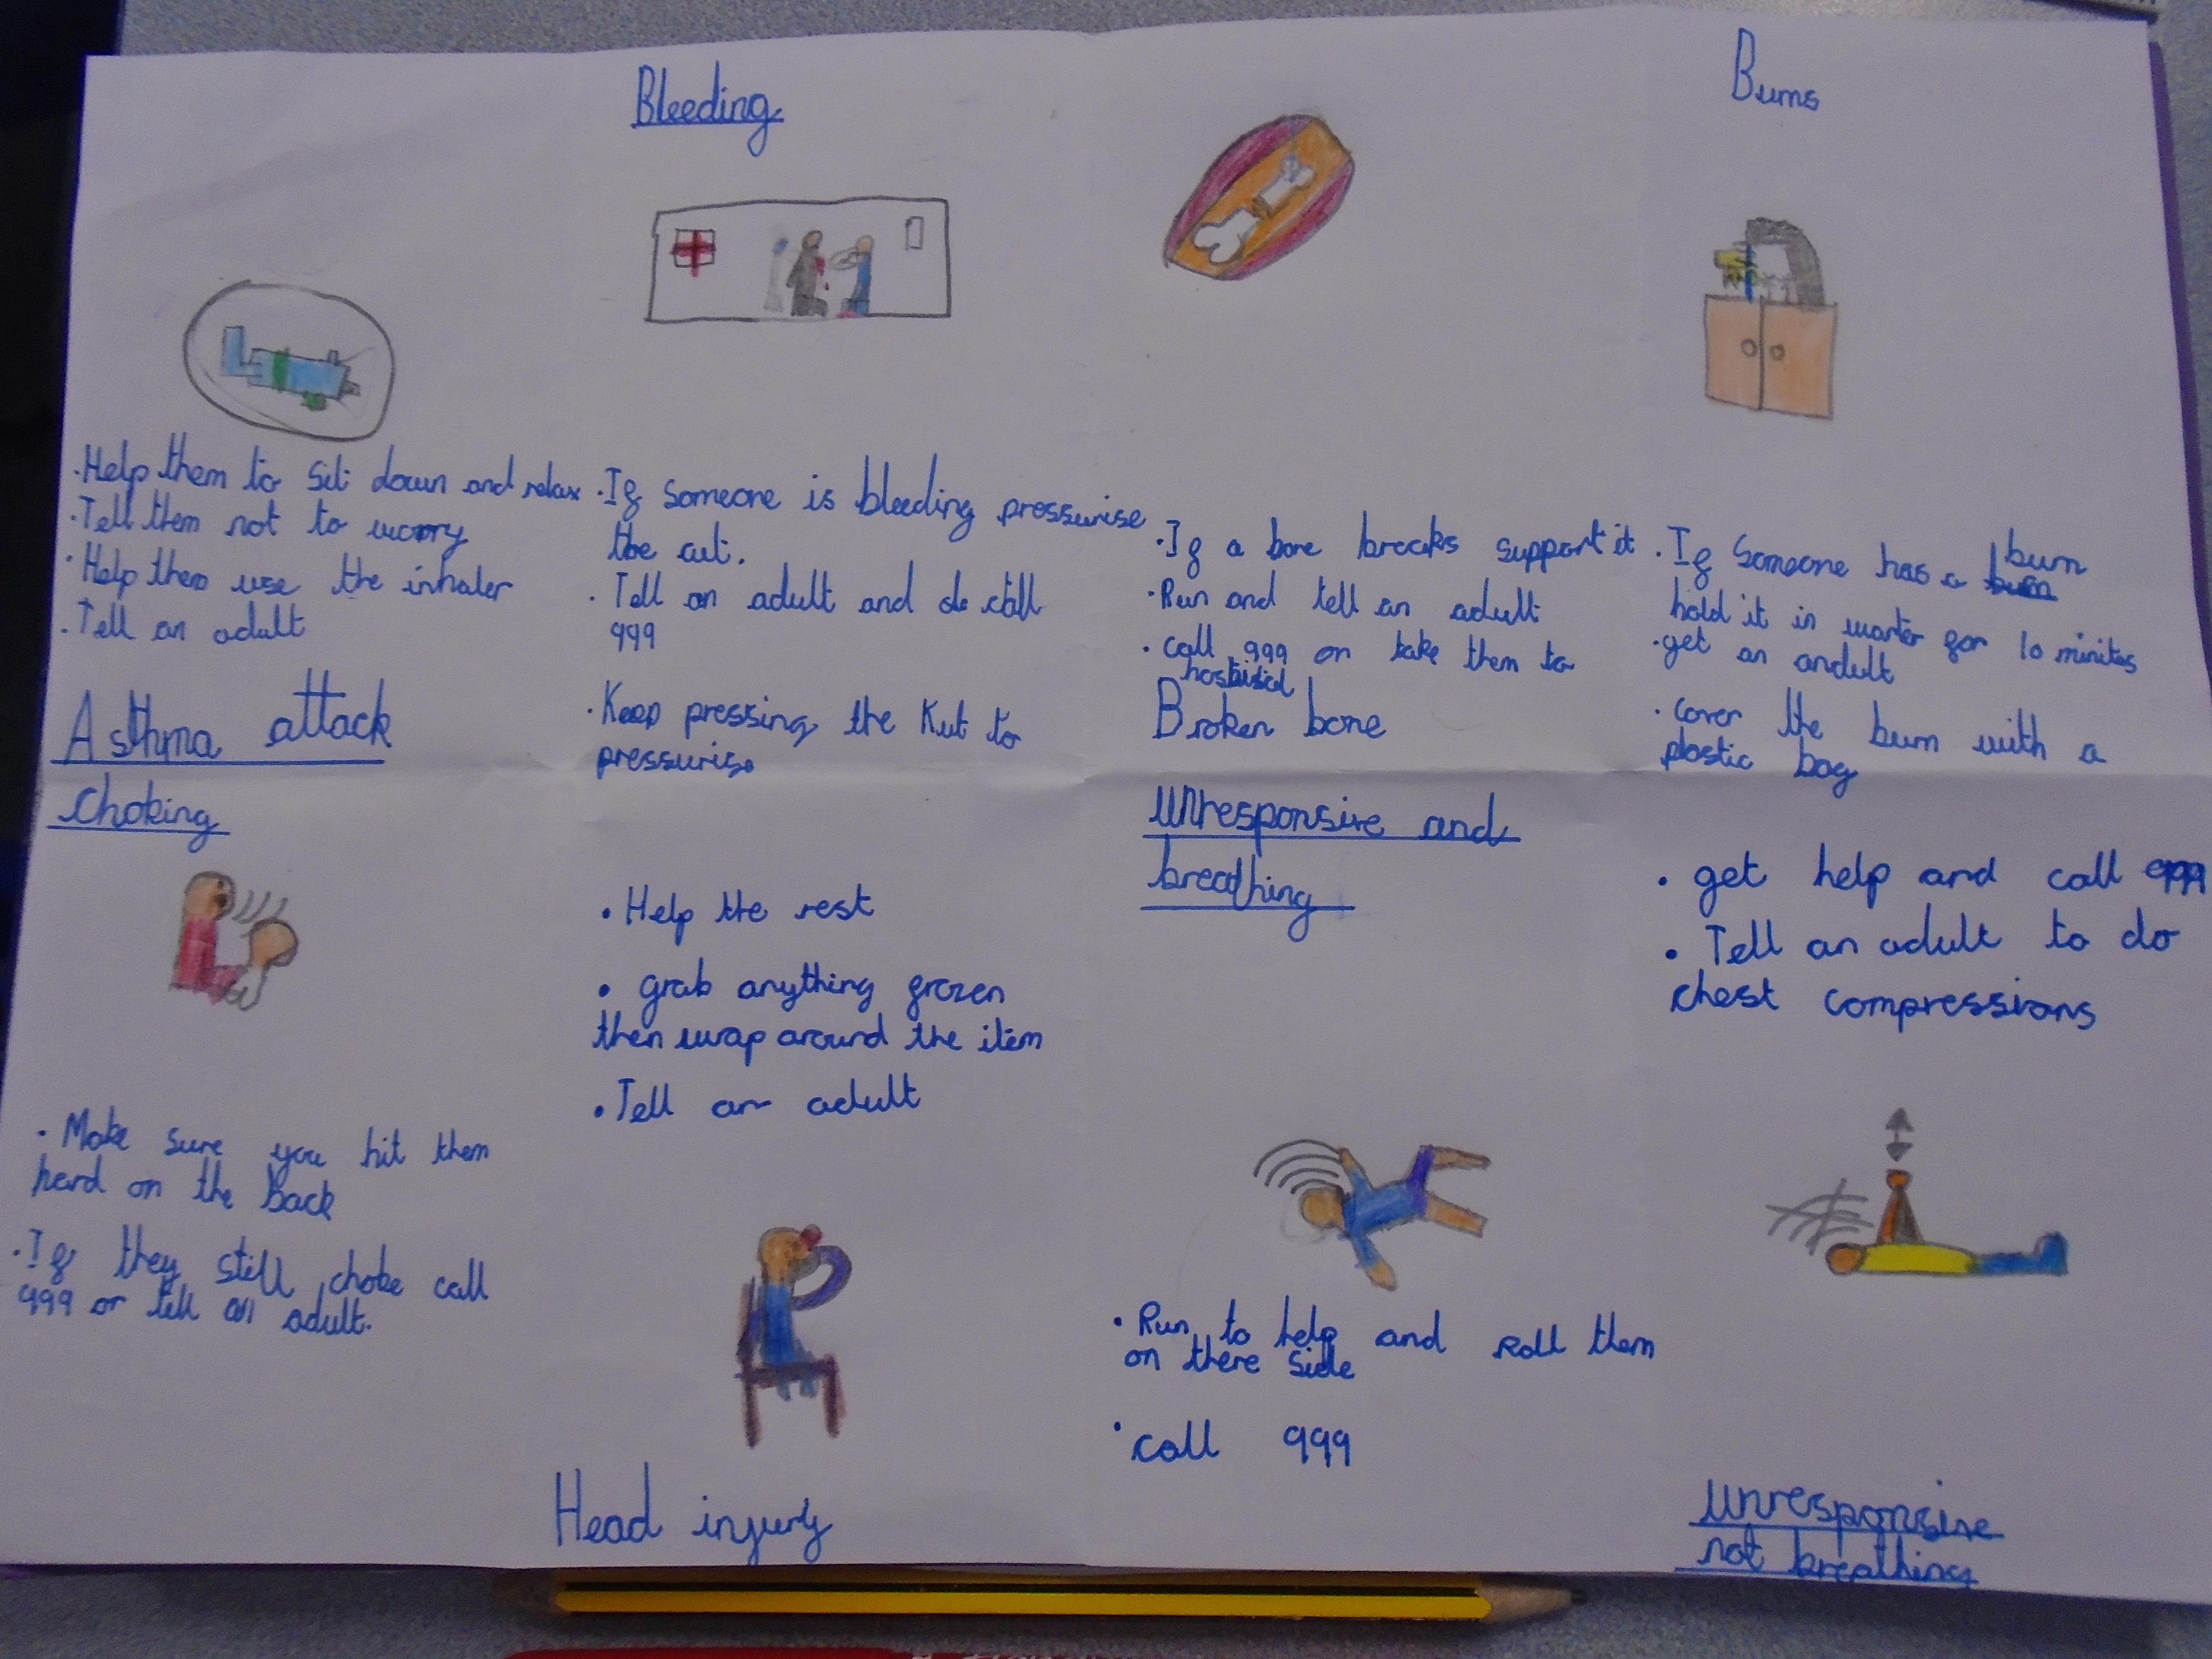 Bleeding
Burns
.Help them to sit down and relax
.Tell them not to worry
.Help them use the inhaler
.Tell an adult
Asthma attack
.If someone is bleeding pressurise
the cut.
.Tell an adult and do call
999
.Keep pressing the Kut to
pressurise
.If a bone breaks support it
.Run and tell an adult
.call 999 or take them to
Broken bone
.If someone has a burn
hold it in warter for 10 minites
.get an andult
.cover the burn with a
plastic bag
Choking
.Make sure you hit them
hard on the back
.If they still choke call
999 or tell an adult.
.Help the rest
.grab anything frozen
then wrap around the item
.Tell an adult
Head injury
Unresponsive and
breathing
.Run to help and roll them
on there side
.call 999
.get help and call 999
.Tell an adult to do
chest compressions
unresponsive
not breathing